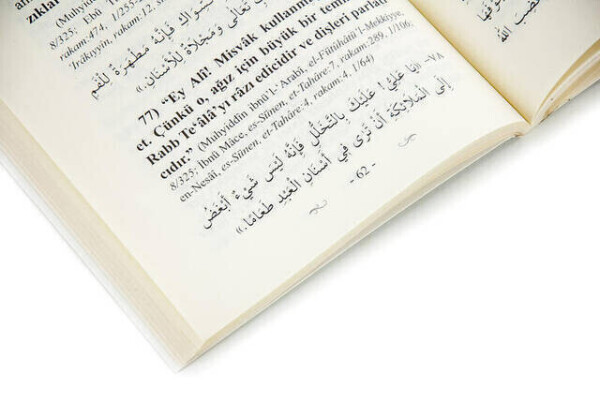 zıklar
(Muhyiddîn
8/325; Ebû
rakam:474, 1/255-
'Irâkıyyîn, rakam:12, s
فَإِنَّهُ مَطْهَرَةٌ لِلْفَمِ
تَعَالَى وَمَجْلَاةٌ لِلْأَسْنَانِ.»
77) “Ey Ali! Misvâk kullanm
et. Çünkü o, ağız için büyük bir tem
Rabb Te‘âlâ’yı râzı edicidir ve dişleri parlatı
cıdır.” (Muhyiddîn ibnü'l-Arabî, el-Fütûhâtü'l-Mekkiyye,
8/325; İbnü Mâce, es-Sünen, et-Tahâre:7, rakam:289, 1/106;
en-Nesâî, es-Sünen, et-Tahâre:4, rakam:4, 1/64)
٧٨- «يَا عَلِيُّ! عَلَيْكَ بِالتَّخَلُّلِ فَإِنَّهُ لَيْسَ شَيْءٌ أَبْغَضَ
إِلَى الْمَلَائِكَةِ أَنْ تَرَى فِي أَسْنَانِ الْعَبْدِ طَعَامًا.»
- 62 -
الله